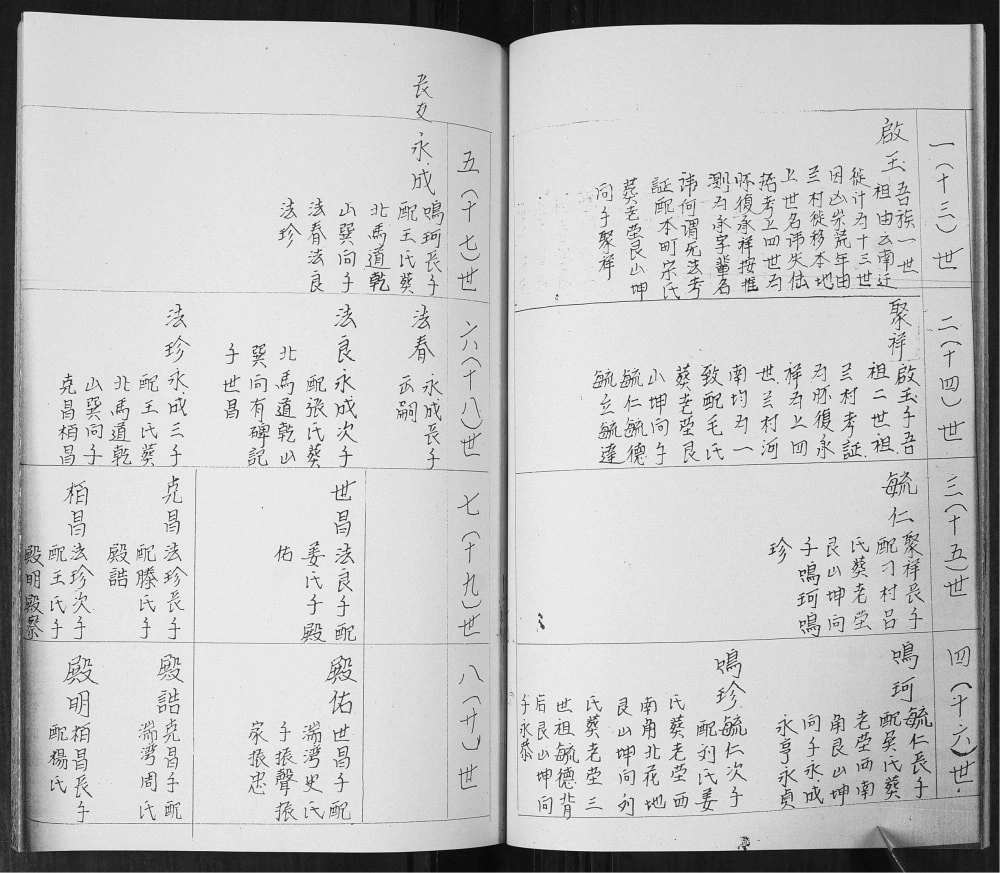 一(十三)世
啟玉 吾族一世
祖由云南迁
徙计为十三世
因凶荒年由
兰村徙移本地
上世名讳失佉
括考上四世为
怀復永祥按推
测为永字輩名
讳何谓无法考
証配本町宗氏
葬老茔艮山坤
向子聚祥
二(十四)世
聚祥 啟玉子吾
祖二世祖
兰村考証
为怀復永
祥为上四
世兰村河
南均为一
致配毛氏
葬老茔艮
山坤向子
毓仁毓德
毓立毓達
三(十五)世
毓仁 聚祥長子
配刁村吕
氏葬老茔
艮山坤向
子鳴珂鳴
珍
四(十六)世
鳴珂 毓仁長子
配吳氏葬
老茔西南
角艮山坤
向子永成
永亨永貞
鳴珍 毓仁次子
配刘氏姜
氏葬老茔西
南角北花地
艮山坤向刘
氏葬老茔三
世祖毓德背
后艮山坤向
子永泰
長支
五(十七)世
永成 鳴珂長子
配王氏葬
北馬道乾
山巽向子
法春法良
法珍
六(十八)世
法春 永成長子
正嗣
法良 永成次子
配張氏葬
北馬道乾山
巽向有碑記
子世昌
法珍 永成三子
配王氏葬
北馬道乾
山巽向子
克昌栢昌
七(十九)世
世昌 法良子配
姜氏子殿
佑
克昌 法珍長子
配滕氏子
殿誥
栢昌 法珍次子
配王氏子
殿明殿
八(廿)世
殿佑 世昌子配
湍湾史氏
子振聲振
家振忠
殿誥 克昌子配
湍湾周氏
殿明 栢昌長子
配楊氏